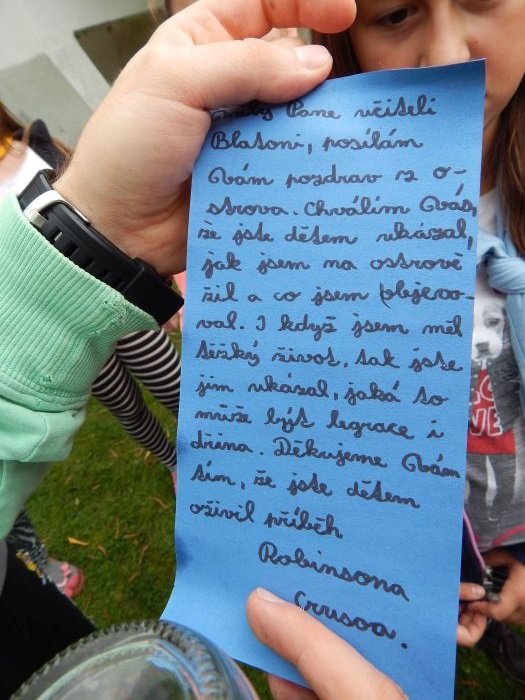 Milý Pane učiteli
Blatoni, posílám
Vám pozdrav z o-
strova. Chválím Vás,
že jste dětem ukázal,
jak jsem na ostrově
žil a co jsem objevo-
val. I když jsem měl
těžký život, tak jste
jim ukázal, jaká to
může být legrace i
dřina. Děkujeme Vám
tím, že jste dětem
oživil příběh
Robinsona
Crusoa.